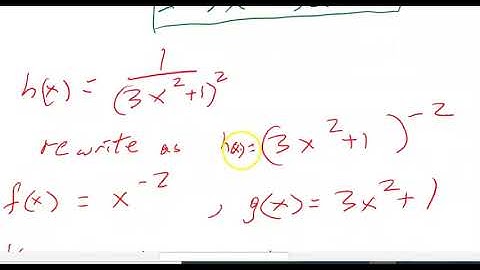 h(x) = 1/(3x²+1)²
rewrite as h(x)=(3x²+1)⁻²
f(x) = x⁻² , g(x) = 3x²+1